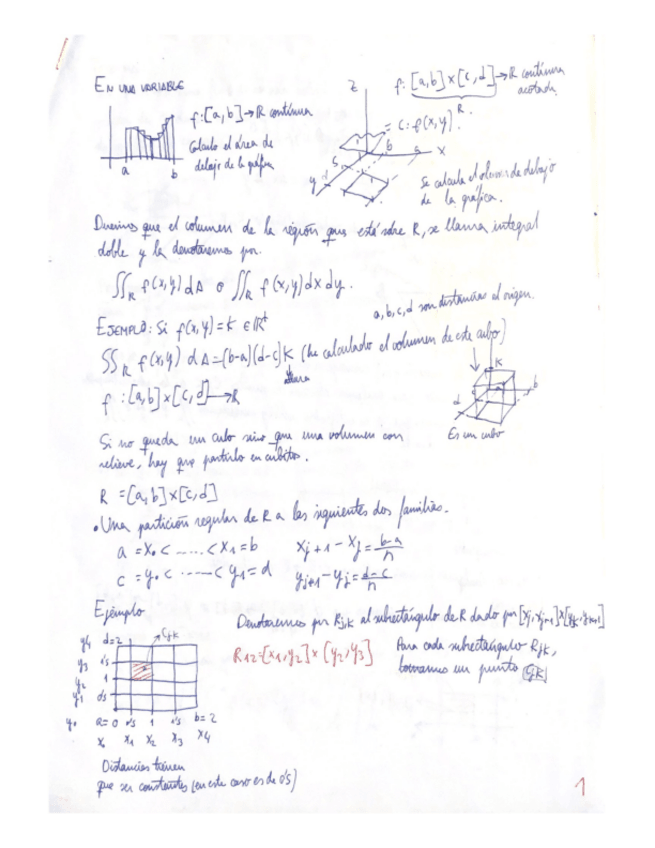 EN UNA VARIABLE
f: [a,b] → R continua
Calculo el área de
debajo de la gráfica
a b
z
f: [a,b] × [c,d] → R continua
acotada.
R.
= C: f(x,y)
x
y
Se calcula el volumen de debajo
de la gráfica.
Diremos que el volumen de la región que está sobre R, se llama integral
doble y la denotaremos por.
∬R f(x,y) dA o ∬R f(x,y) dx dy.
a, b, c, d son distancias al origen.
EJEMPLO: Si f(x,y) = K ∈ R⁺
∬R f(x,y) dA = (b-a)(d-c) K (he calculado el volumen de este cubo)
altura
f: [a,b] × [c,d] → R
K
d
b
Es un cubo
Si no queda un cubo sino que una volumen con
relieve, hay que partirlo en cubitos.
R = [a,b] × [c,d]
• Una partición regular de R a las siguientes dos familias.
a = x₀ < ..... < x₁ = b xj+1 - xj = b-a/n
c = y₀ < ..... < y₁ = d yj+1 - yj = d-c/n
Ejemplo
Denotaremos por Rjk al subrectángulo de R dado por [xj, xj+1] × [yk, yk+1]
R12 = [x1, y2] × [y2, y3]
Para cada subrectángulo Rjk,
tomamos un punto Cjk
y4 d=2 Cjk
y3 1'5
y2 1
y1 0'5
y0 a=0 0'5 1 1'5 b=2
x0 x1 x2 x3 x4
Distancias tienen
que ser constantes (en este caso es de 0'5)
1